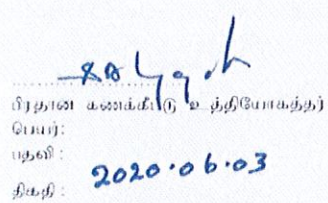 பிரதான கணக்கீட்டு உத்தியோகத்தர்
பெயர்:
பதவி :
திகதி : 2020.06.03